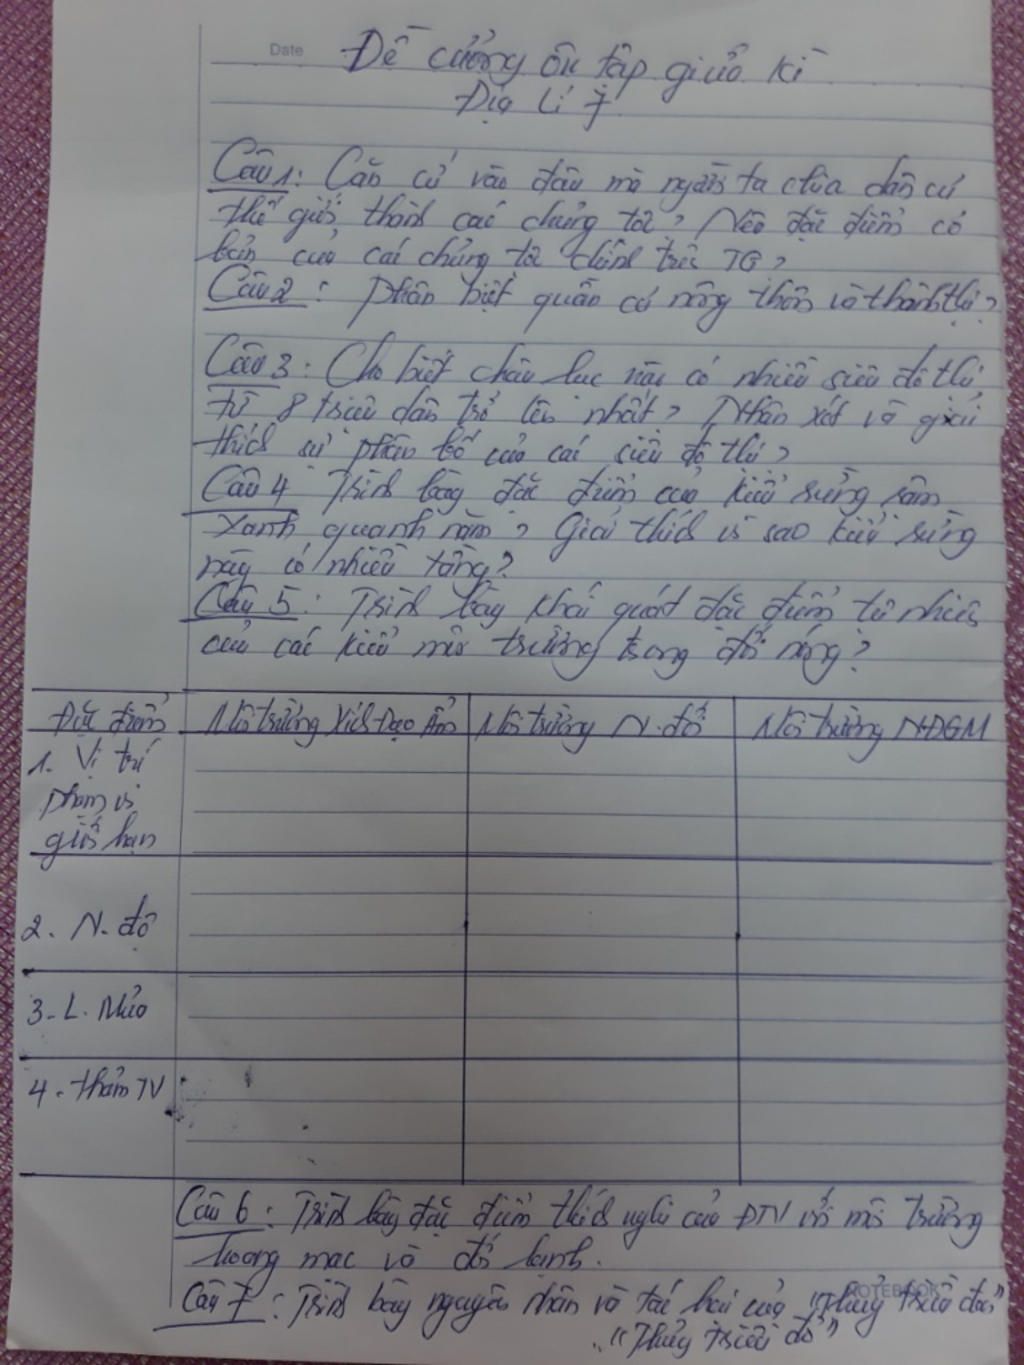 Date
Đề cương ôn tập giữa kì
Địa Lí 7
Câu 1: Căn cứ vào đâu mà người ta chia dân cư
thế giới thành các chủng tộc? Nêo đặc điểm cơ
bản của các chủng tộc chính trên TG?
Câu 2: Phân biệt quần cư nông thôn và thành thị?
Câu 3: Cho biết châu lục nào có nhiều siêu đô thị
từ 8 triệu dân trở lên nhất? Nhận xét và giải
thích sự phân bố của các siêu đô thị?
Câu 4 Trình bày đặc điểm của kiểu rừng rậm
xanh quanh năm? Giải thích vì sao kiểu rừng
này có nhiều tầng?
Câu 5: Trình bày khái quát đặc điểm tự nhiên
của các kiểu môi trường trong đới nóng?
Đặc điểm Môi trường Xích Đạo Ẩm Môi trường N. đới Môi trường NĐGM
1. Vị trí
phạm vi
giới hạn
2. N. độ
3. L. Mưa
4. thảm TV
Câu 6: Trình bày đặc điểm thích nghi của ĐTV với môi trường
hoang mạc và đới lạnh.
NOTEBOOK
Câu 7: Trình bày nguyên nhân và tác hại của "Thủy triều đen"
"Thủy triều đỏ"